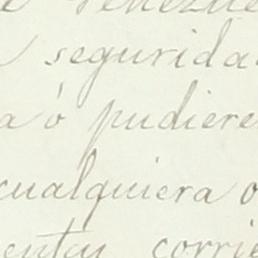 e Venezue
seguridad
a ó pudiere
cualquiera o
entas corrie